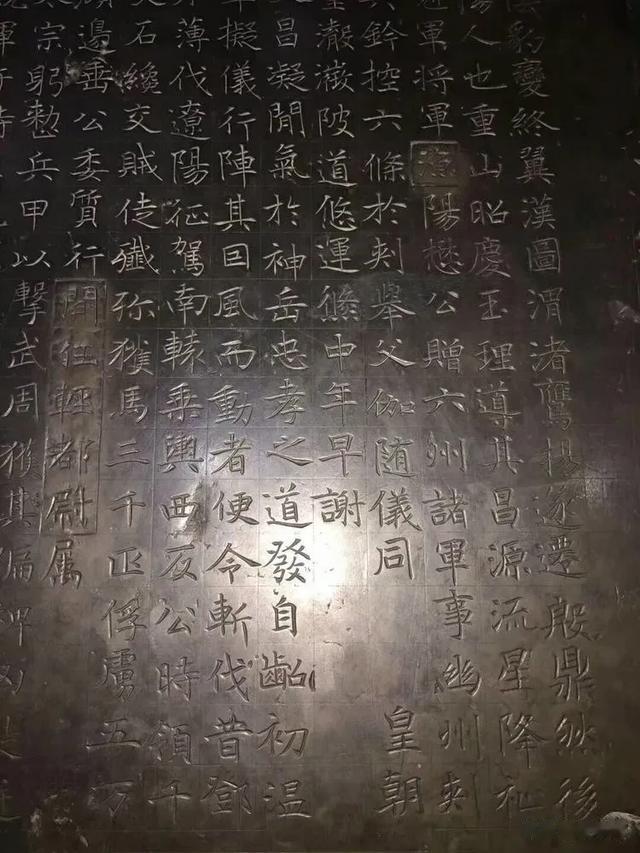 豹變終翼漢圖渭渚鷹揚遂遷殷鼎然後
陽人也重山昭慶玉理導其昌源流星降祉
軍將軍陽懋公贈六州諸軍事幽州刺
鈐控六條於刺舉父伽随儀同 皇朝
陂道悠運倐中年早謝
昌凝閒氣於神岳忠孝之道發自齠初温
擬儀行陣其回風而動者便令斬伐昔鄧
薄伐遼陽征駕南轅乘輿西反公時領千
石纔交賊徒殲殄獲馬三千疋俘虜五万
邊垂公委質行開任輕都尉属
宗躬勑兵甲以擊武周獲其偏裨凶